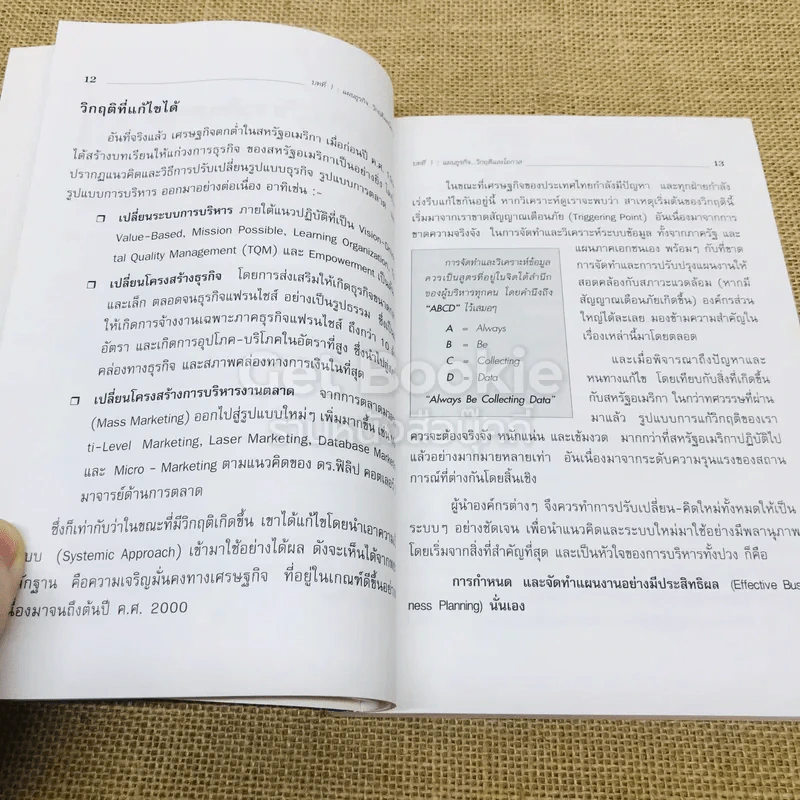 12
บทที่ 1 : แผนธุรกิจ..วิกฤติ
วิกฤติที่แก้ไขได้
อันที่จริงแล้ว เศรษฐกิจตกต่ำในสหรัฐอเมริกา เมื่อก่อนปี ค.ศ.
ได้สร้างบทเรียนให้แก่วงการธุรกิจ ของสหรัฐอเมริกาเป็นอย่างยิ่ง
ปรากฏแนวคิดและวิธีการปรับเปลี่ยนรูปแบบธุรกิจ รูปแบบการตลาด
รูปแบบการบริหาร ออกมาอย่างต่อเนื่อง อาทิเช่น :-
❒ เปลี่ยนระบบการบริหาร ภายใต้แนวปฏิบัติที่เป็น Vision-
Value-Based, Mission Possible, Learning Organization
tal Quality Management (TQM) และ Empowerment เป็นต้น
❒ เปลี่ยนโครงสร้างธุรกิจ โดยการส่งเสริมให้เกิดธุรกิจขนาด
และเล็ก ตลอดจนธุรกิจแฟรนไชส์ อย่างเป็นรูปธรรม
ให้เกิดการจ้างงานเฉพาะภาคธุรกิจแฟรนไชส์ ถึงกว่า 10
อัตรา และเกิดการอุปโภค-บริโภคในอัตราที่สูง ซึ่งนำไปสู่
คล่องทางธุรกิจ และสภาพคล่องทางการเงินในที่สุด
❒ เปลี่ยนโครงสร้างการบริหารงานตลาด จากการตลาด
(Mass Marketing) ออกไปสู่รูปแบบใหม่ๆ เพิ่มมากขึ้น เช่น
ti-Level Marketing, Laser Marketing, Database Marketing
และ Micro - Marketing ตามแนวคิดของ ดร.ฟิลิป คอตเลอร์
มาจารย์ด้านการตลาด
ซึ่งก็เท่ากับว่าในขณะที่มีวิกฤติเกิดขึ้น เขาได้แก้ไขโดยนำเอาความ
บบ (Systemic Approach) เข้ามาใช้อย่างได้ผล ดังจะเห็นได้จาก
ักฐาน คือความเจริญมั่นคงทางเศรษฐกิจ ที่อยู่ในเกณฑ์ดีขึ้นอย่าง
นื่องมาจนถึงต้นปี ค.ศ. 2000
บทที่ 1 : แผนธุรกิจ..วิกฤติและโอกาส
13
ในขณะที่เศรษฐกิจของประเทศไทยกำลังมีปัญหา และทุกฝ่ายกำลัง
เร่งรีบแก้ไขกันอยู่นี้ หากวิเคราะห์ดูเราจะพบว่า สาเหตุเริ่มต้นของวิกฤตินี้
เริ่มมาจากเราขาดสัญญาณเตือนภัย (Triggering Point) อันเนื่องมาจากการ
ขาดความจริงจัง ในการจัดทำและวิเคราะห์ระบบข้อมูล ทั้งจากภาครัฐ และ
แผนภาคเอกชนเอง พร้อมๆ กับที่ขาด
การจัดทำและการปรับปรุงแผนงานให้
สอดคล้องกับสภาวะแวดล้อม (หากมี
สัญญาณเตือนภัยเกิดขึ้น) องค์กรส่วน
ใหญ่ได้ละเลย มองข้ามความสำคัญใน
เรื่องเหล่านี้มาโดยตลอด
การจัดทำและวิเคราะห์ข้อมูล
ควรเป็นสูตรที่อยู่ในจิตใต้สำนึก
ของผู้บริหารทุกคน โดยคำนึงถึง
“ABCD” ไว้เสมอๆ
A = Always
B = Be
C = Collecting
D = Data
“Always Be Collecting Data”
และเมื่อพิจารณาถึงปัญหาและ
หนทางแก้ไข โดยเทียบกับสิ่งที่เกิดขึ้น
กับสหรัฐอเมริกา ในกว่าทศวรรษที่ผ่าน
มาแล้ว รูปแบบการแก้วิกฤติของเรา
ควรจะต้องจริงจัง หนักแน่น และเข้มงวด มากกว่าที่สหรัฐอเมริกาปฏิบัติไป
แล้วอย่างมากมายหลายเท่า อันเนื่องมาจากระดับความรุนแรงของสถาน
การณ์ที่ต่างกันโดยสิ้นเชิง
ผู้นำองค์กรต่างๆ จึงควรทำการปรับเปลี่ยน-คิดใหม่ทั้งหมดให้เป็น
ระบบๆ อย่างชัดเจน เพื่อนำแนวคิดและระบบใหม่มาใช้อย่างมีพลานุภาพ
โดยเริ่มจากสิ่งที่สำคัญที่สุด และเป็นหัวใจของการบริหารทั้งปวง ก็คือ
การกำหนด และจัดทำแผนงานอย่างมีประสิทธิผล (Effective Busi
ness Planning) นั่นเอง
Get Bookie
ร้านหนังสือบุ๊คกี้